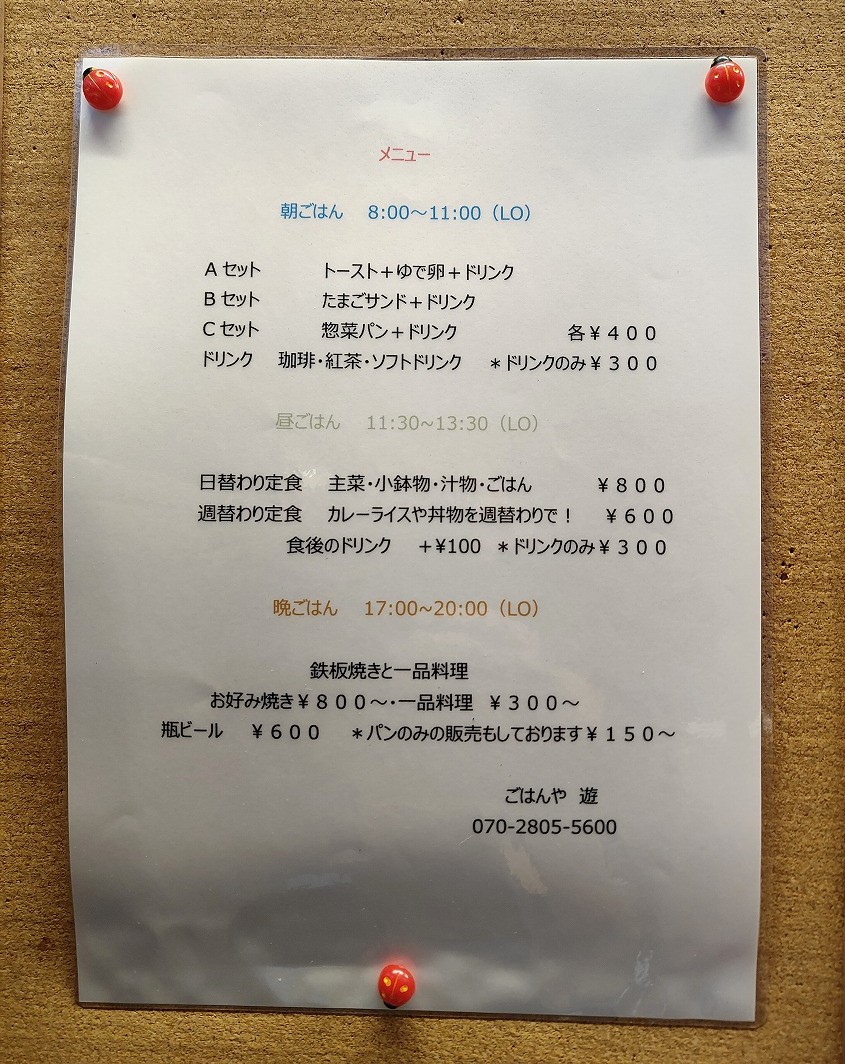 メニュー
朝ごはん 8:00～11:00（LO）
Aセット トースト＋ゆで卵＋ドリンク
Bセット たまごサンド＋ドリンク
Cセット 惣菜パン＋ドリンク 各￥４００
ドリンク 珈琲・紅茶・ソフトドリンク ＊ドリンクのみ￥３００
昼ごはん 11:30~13:30（LO）
日替わり定食 主菜・小鉢物・汁物・ごはん ￥８００
週替わり定食 カレーライスや丼物を週替わりで！ ￥６００
食後のドリンク ＋¥100 ＊ドリンクのみ￥３００
晩ごはん 17:00~20:00（LO）
鉄板焼きと一品料理
お好み焼き￥８００～・一品料理 ￥３００～
瓶ビール ￥６００ ＊パンのみの販売もしております￥１５０～
ごはんや 遊
070-2805-5600